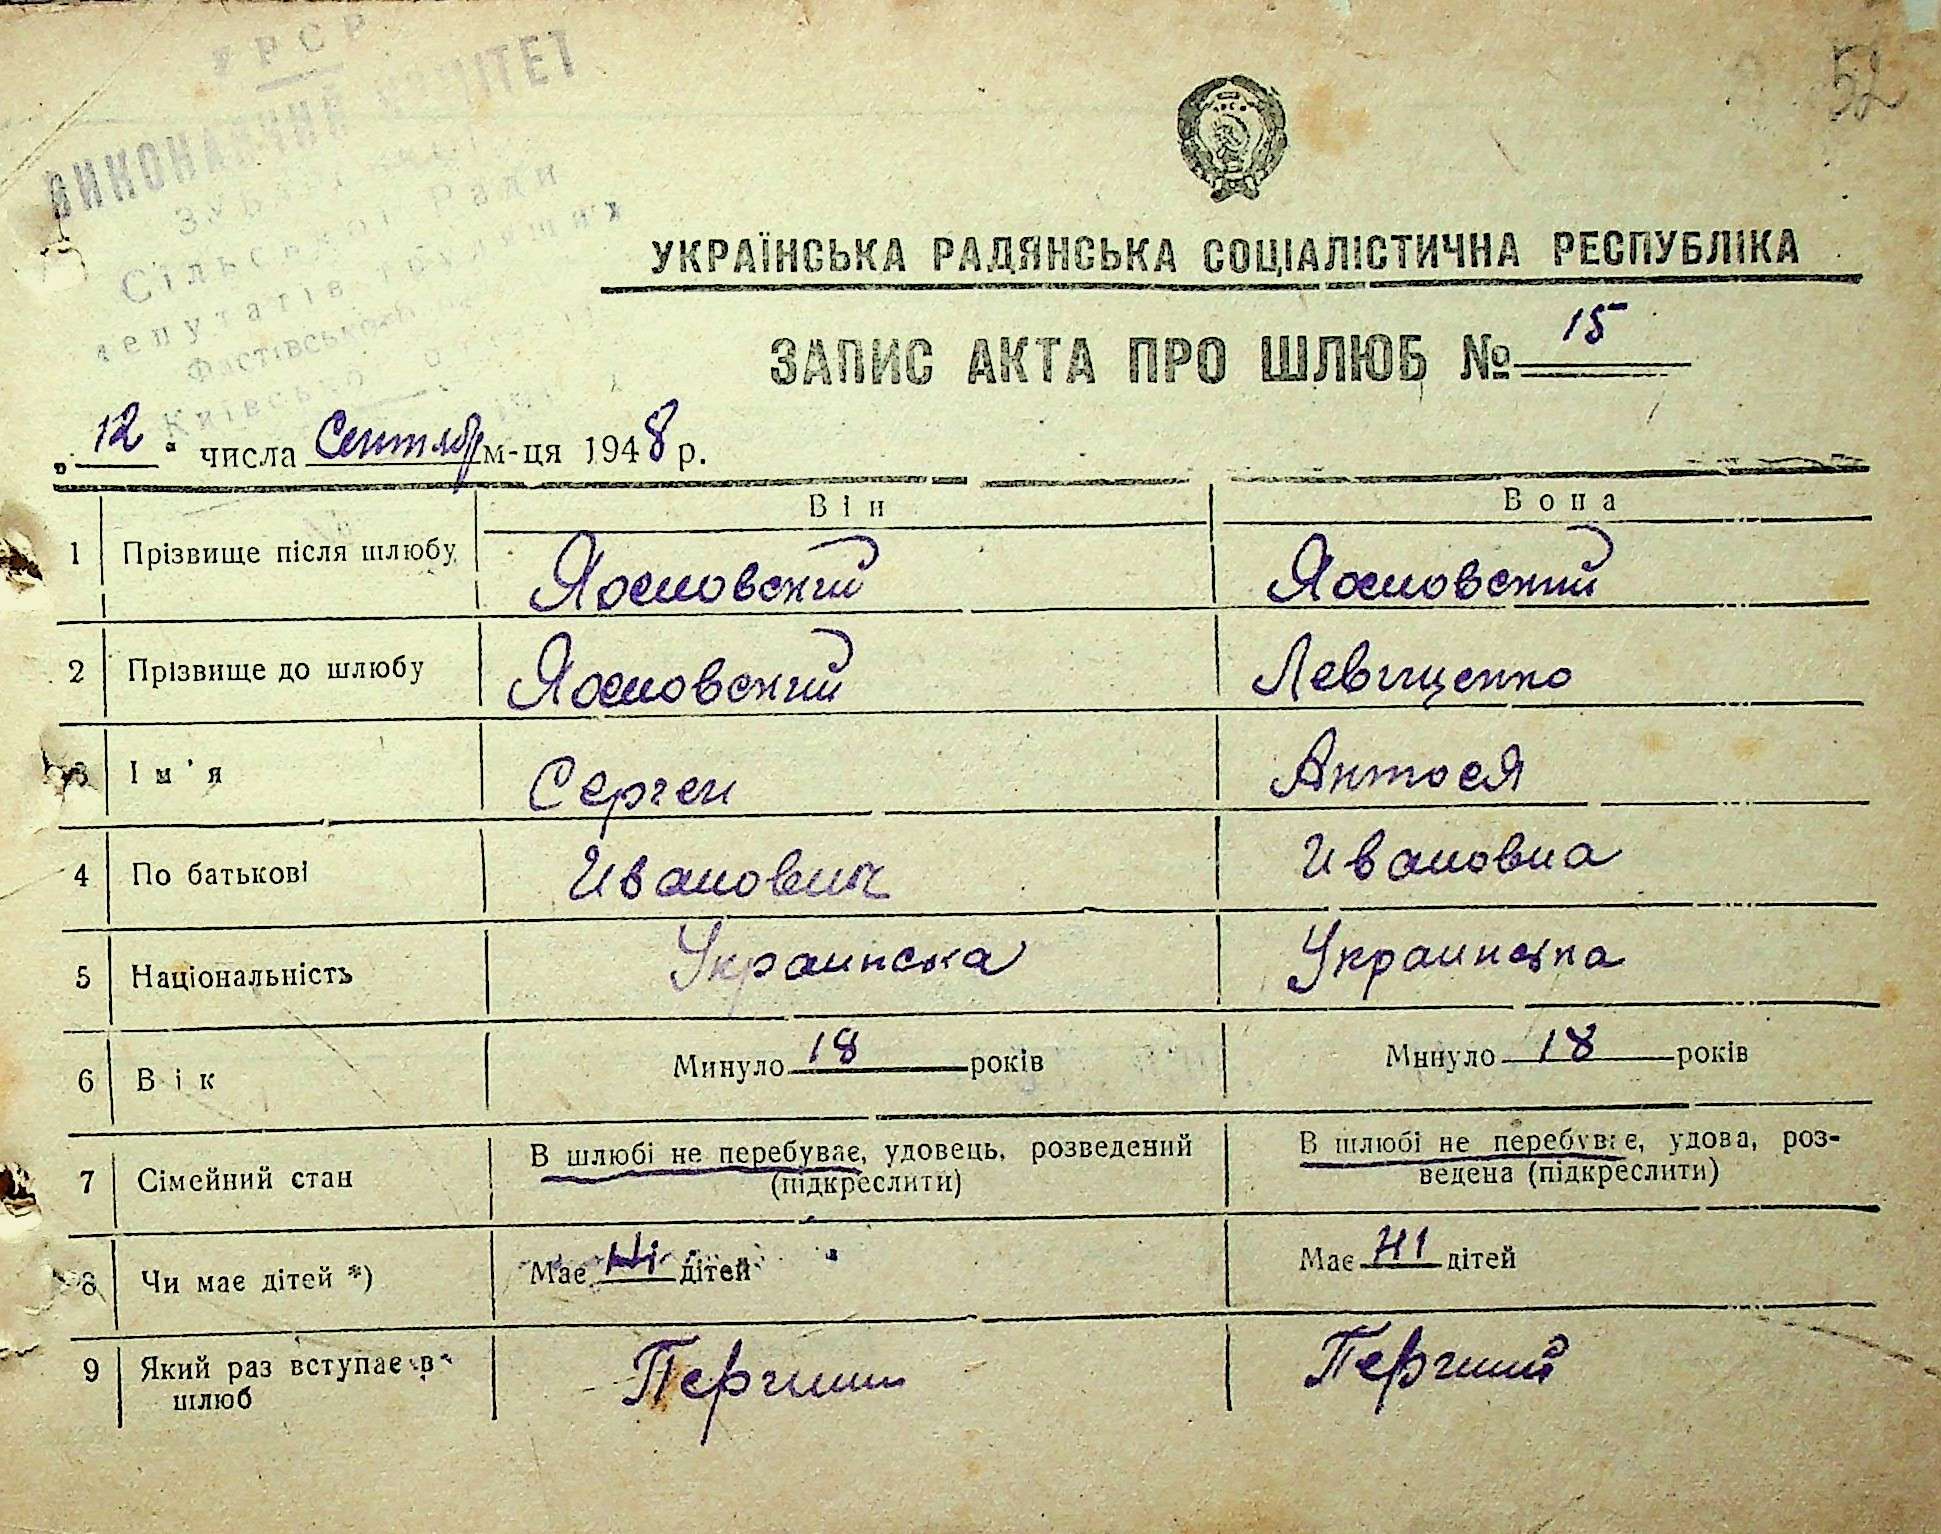 52
УРСР
ВИКОНАВЧИЙ КОМІТЕТ
Сільської Ради
депутатів трудящих
Фастівського
Київської
УКРАЇНСЬКА РАДЯНСЬКА СОЦІАЛІСТИЧНА РЕСПУБЛІКА
ЗАПИС АКТА ПРО ШЛЮБ № 15
„12“ числа Сентябр м-ця 1948 р.
Він Вона
1 Прізвище після шлюбу
2 Прізвище до шлюбу Левищенко
3 Ім'я Сергеи Антося
4 По батькові Иванович Ивановна
5 Національність Украинска Украинска
6 Вік Минуло 18 років Минуло 18 років
7 Сімейний стан В шлюбі не перебуває, удовець, розведений В шлюбі не перебуває, удова, роз-
(підкреслити) ведена (підкреслити)
8 Чи має дітей *) Має Ні дітей Має НІ дітей
9 Який раз вступає в
шлюб